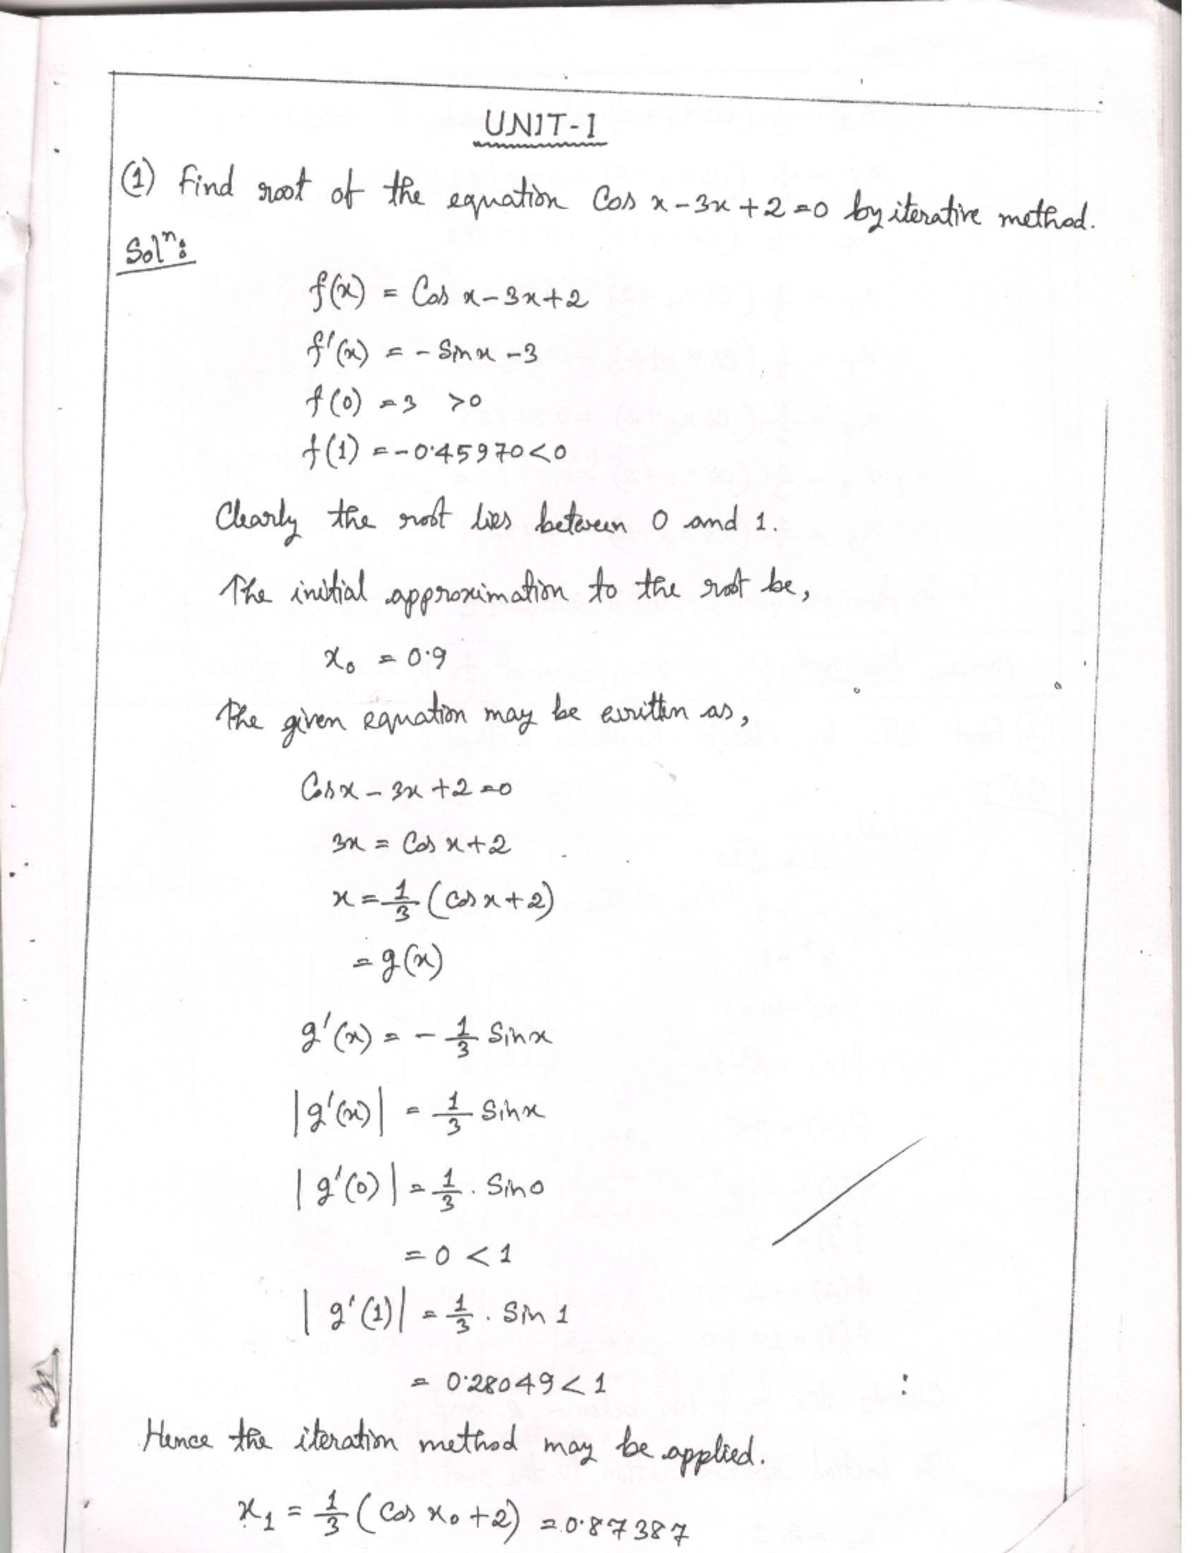 UNIT-1
(1) Find root of the equation Cos x-3x+2=0 by iterative method.
Solⁿ:
f(x) = Cos x-3x+2
f'(x) = - Sin x -3
f(0) =3 >0
f(1) =-0.45970<0
Clearly the root lies between 0 and 1.
The initial approximation to the root be,
x₀ = 0.9
The given equation may be written as,
Cosx - 3x +2 =0
3x = Cos x+2
x = 1/3 (cos x+2)
= g(x)
g'(x) = - 1/3 Sinx
|g'(x)| = 1/3 Sinx
|g'(0)| = 1/3 . Sin0
= 0 < 1
|g'(1)| = 1/3 . Sin 1
= 0.28049 < 1
Hence the iteration method may be applied.
x₁ = 1/3 (Cos x₀ +2) =0.87387